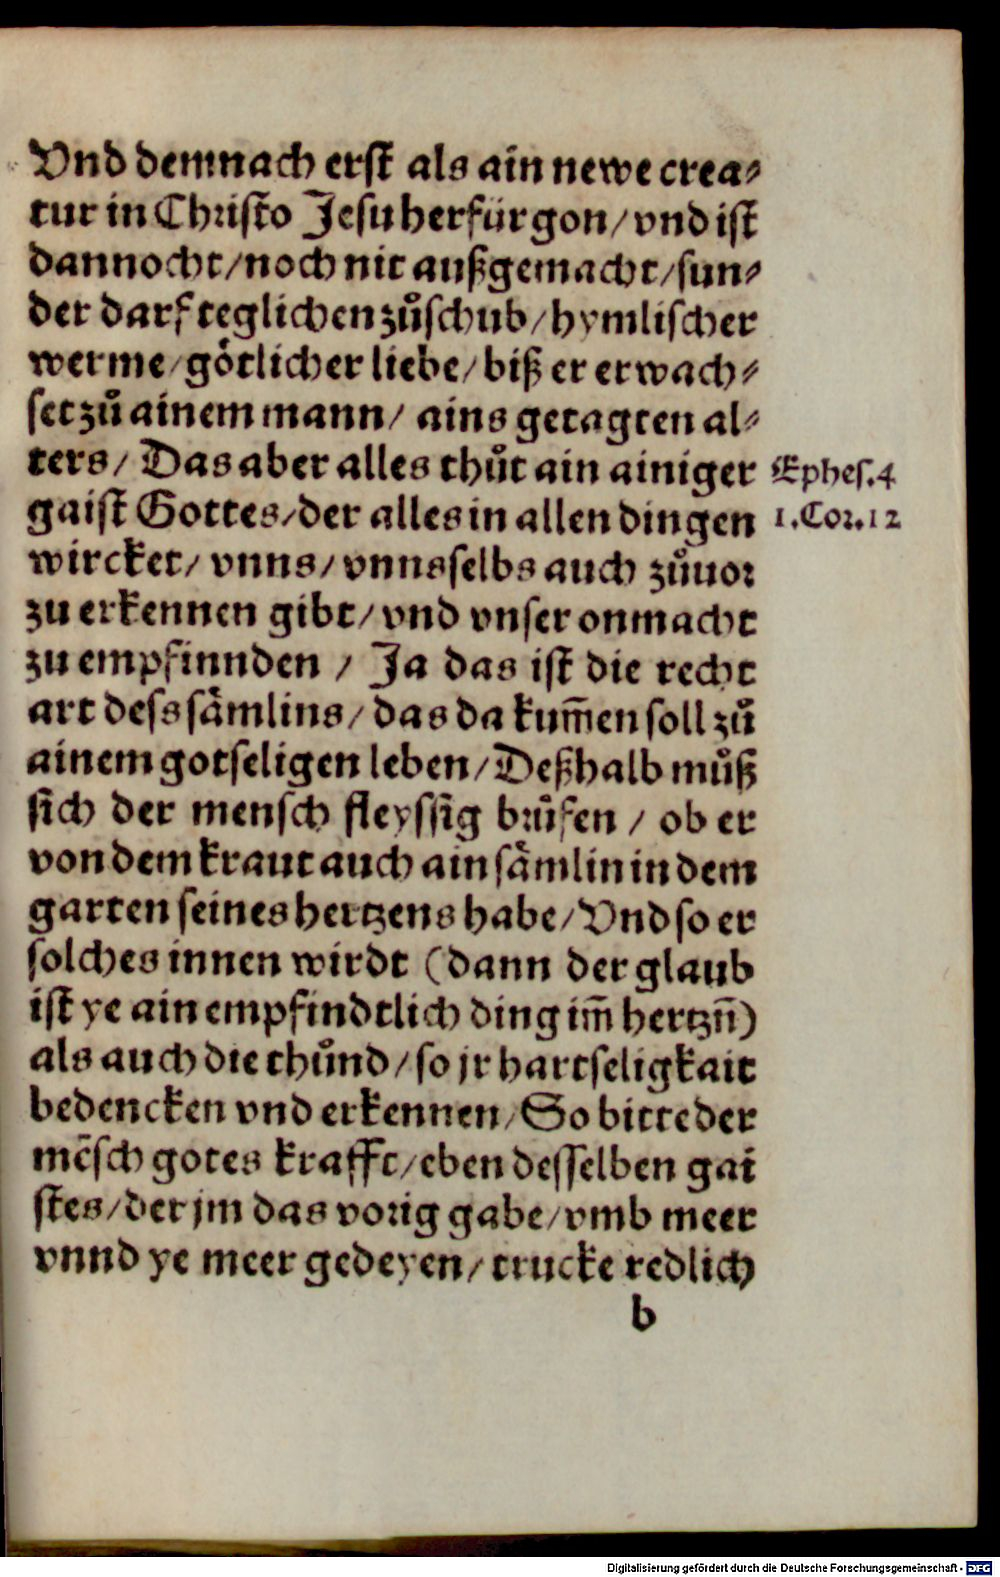 Vnd demnach erst als ain newe crea⸗
tur in Christo Jesu herfür gon/ vnd ist
dannocht/ noch nit außgemacht/ sun⸗
der darf teglichen zůschub/ hymlischer
werme/ gőtlicher liebe/ biß er erwach⸗
set zů ainem mann/ ains getagten al⸗
ters/ Das aber alles thůt ain ainiger
Ephes. 4
gaist Gottes/ der alles in allen dingen
1. Cor. 12
wircket/ vnns/ vnnsselbs auch zůuor
zu erkennen gibt/ vnd vnser onmacht
zu empfinnden / Ja das ist die recht
art dess sämlins/ das da kum̄en soll zů
ainem gotseligen leben/ Deßhalb můß
sich der mensch fleyssig brůfen / ob er
von dem kraut auch ain sämlin in dem
garten seines hertzens habe/ Vnd so er
solches innen wirdt (dann der glaub
ist ye ain empfindtlich ding im̄ hertzn̄)
als auch die thůnd/ so jr hartseligkait
bedencken vnd erkennen/ So bitte der
mēsch gotes krafft/ eben desselben gai
stes/ der jm das vorig gabe/ vmb meer
vnnd ye meer gedeyen/ trucke redlich
b
Digitalisierung gefördert durch die Deutsche Forschungsgemeinschaft - DFG